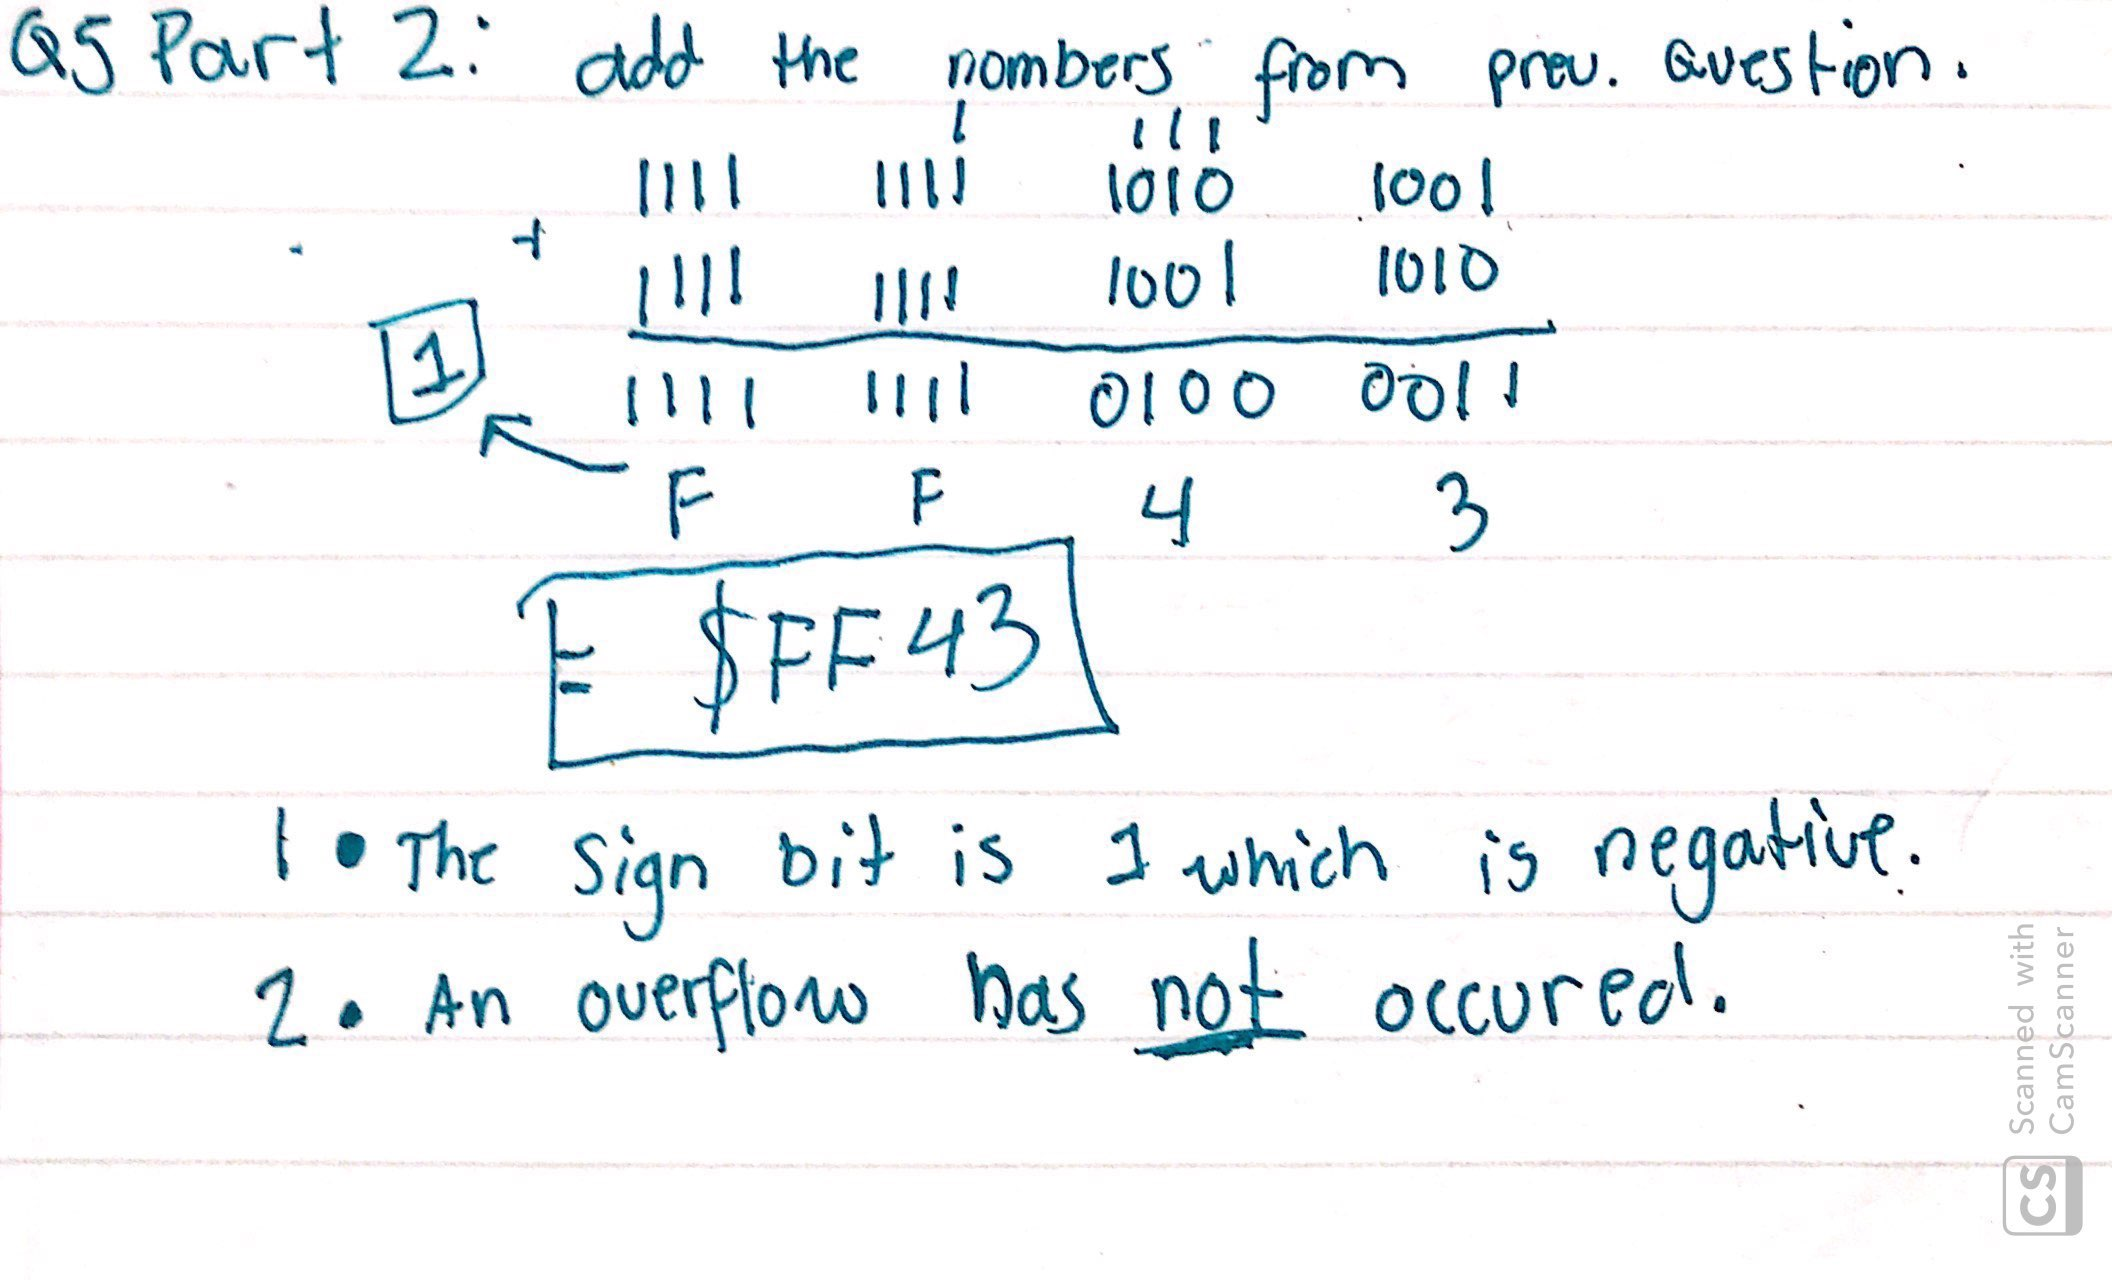 Q5 Part 2: add the nombers from prev. Question.
1 111
1111 1111 1010 1001
+
1111 1111 1001 1010
1
1111 1111 0100 0011
F F 4 3
= $FF43
1. The Sign bit is 1 which is negative.
2. An overflow has not occured.
Scanned with
CamScanner
CS